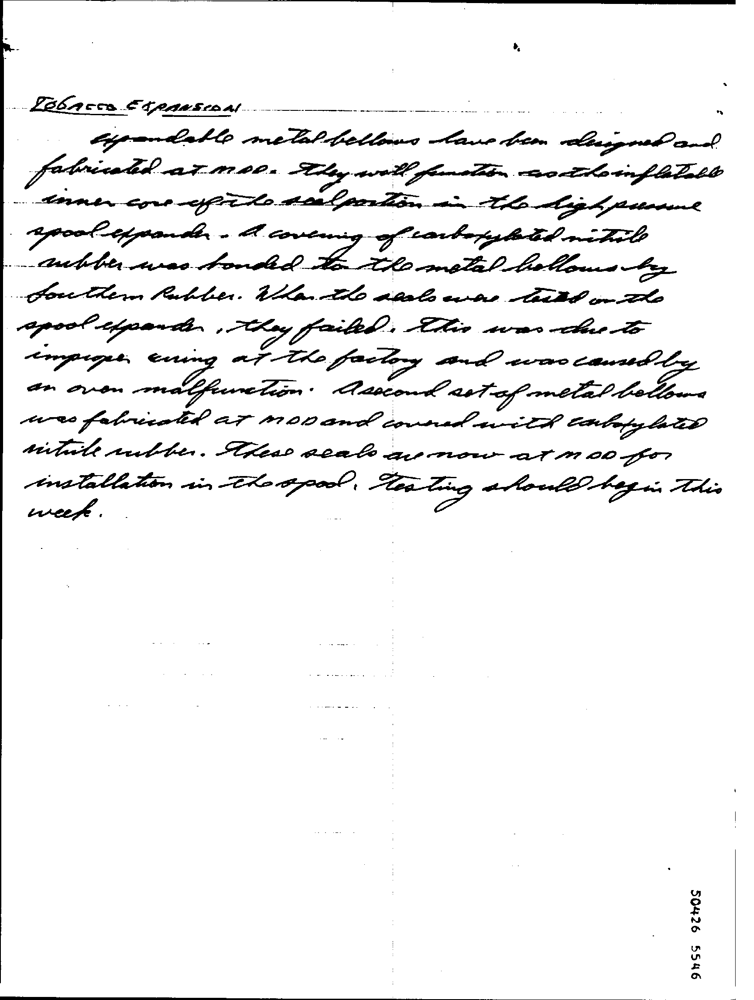 TOBACCO EXPANSION
Expandable metal bellows have been designed and
fabricated at MDD. They will function as the inflatable
inner core of the seal portion in the high pressure
spool expander. A covering of carboxylated nitrile
rubber was bonded to the metal bellows by
Southern Rubber. When the seals were tested on the
spool expander, they failed. This was due to
improper curing at the factory and was caused by
an oven malfunction. A second set of metal bellows
was fabricated at MDD and covered with carboxylated
nitrile rubber. These seals are now at MDD for
installation in the spool. Testing should begin this
week.
50426 5546